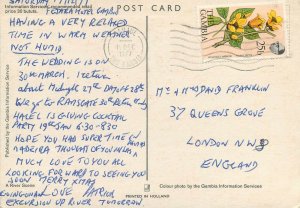 SATURDAY
Information Services
POST CARD
price 36 bututs.
FAJARA HOTEL GAMBIA
HAVING A VERY RELAXED
TIME IN WARM WEATHER
NOT HUMID
THE WEDDING IS ON
30th MARCH. I return
about midnight 27th
WE go to RAMSGATE
HAZEL IS GIVING COCKTAIL
PARTY 19th JAN 6.30-8.30
HOPE YOU HAD SUPER TIME IN
MADEIRA THOUGHT OF YOU ALWAYS
MUCH LOVE TO YOU ALL
LOOKING FORWARD TO SEEING YOU
SOON MERRY XMAS
LOVE
EXCURSION UP RIVER TOMORROW
A River Scene
Published by the Gambia Information Service
THE GAMBIA
25b
MR + MRS DAVID FRANKLIN
37 QUEENS GROVE
LONDON NW8
ENGLAND
Colour photo by the Gambia Information Services
PRINTED IN HOLLAND